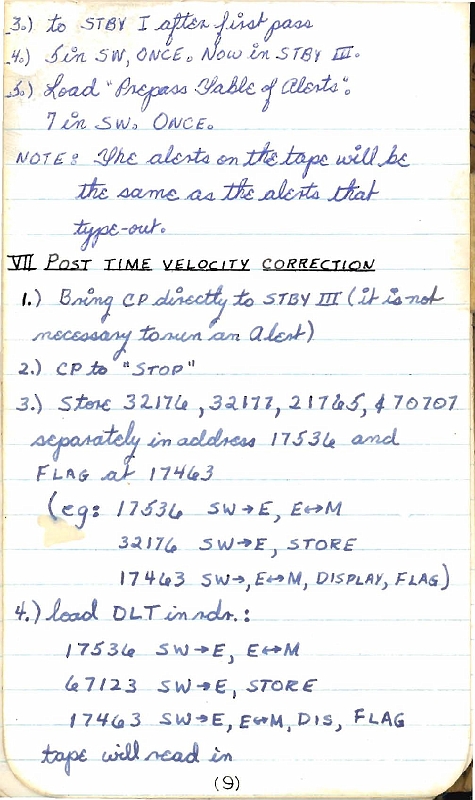 3.) to STBY I after first pass
4.) 5 in SW, ONCE. Now in STBY III.
5.) Load "Prepass Table of Alerts".
7 in SW. ONCE.
NOTE: The alerts on the tape will be
the same as the alerts that
type-out.
VII POST TIME VELOCITY CORRECTION
1.) Bring CP directly to STBY III (it is not
necessary to run an Alert)
2.) CP to "STOP"
3.) Store 32176, 32177, 21765, & 70707
separately in address 17536 and
FLAG at 17463
(eg: 17536 SW→E, E↔M
32176 SW→E, STORE
17463 SW→, E↔M, DISPLAY, FLAG)
4.) load DLT in rdr.:
17536 SW→E, E↔M
67123 SW→E, STORE
17463 SW→E, E↔M, DIS, FLAG
tape will read in
(9)